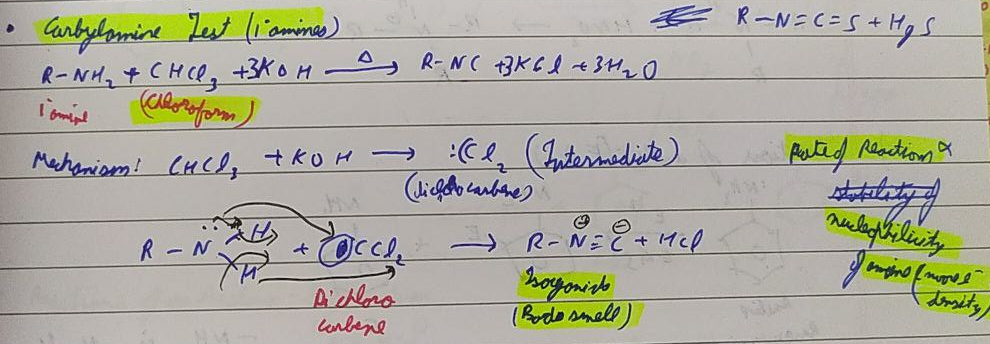 R-N=C=S + HgS
• Carbylamine Test (1° amines)
R-NH₂ + CHCl₃ + 3KOH —Δ→ R-NC + 3KCl + 3H₂O
1° amine (Chloroform)
Mechanism: CHCl₃ + KOH → :CCl₂ (Intermediate)
(dichlorocarbene)
Rate of Reaction ∝
stability of
nucleophilicity
of amine (more e⁻
density)
R-N̈ H H + CCl₂ → R-N⊕≡C⊖ + HCl
Dichloro
carbene
(Bad smell)